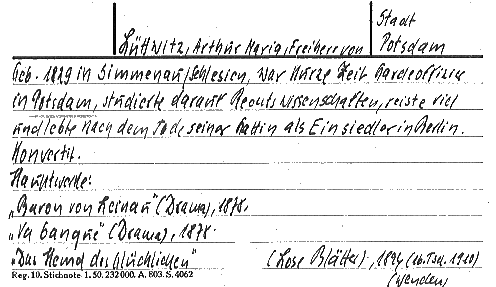 Stadt
Lüttwitz, Arthur Maria, Freiherr von Potsdam
Geb. 1829 in Simmenau/Schlesien, war kurze Zeit Gardeoffizier
in Potsdam, studierte darauf Rechtswissenschaften, reiste viel
und lebte nach dem Tode seiner Gattin als Einsiedler in Berlin.
Konvertit.
Hauptwerke:
„Baron von Reinau" (Drama), 1878.
„Va banque" (Drama), 1878.
„Das Hemd des Glücklichen" (Lose Blätter), 1894
Reg. 10. Stichnote 1. 50. 232 000. A. 803. S. 4062
(Wenden)